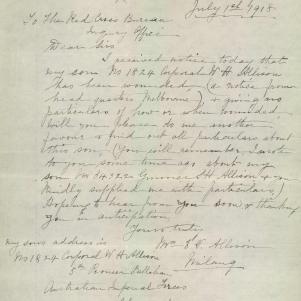 July 1st 1918
To The Red Cross Bureau
Inquiry Office
Dear Sir
I received notice today that
my son No 1824 Corporal W H Allison
has been wounded (a notice from
head quarters Melbourne) & giving no
particulars of how or when wounded
Will you please do me another
favour & find out all particulars about
this son, (You will remember I wrote
to you some time ago about my
son No Gunner Allison & you
kindly supplied me with particulars)
Hoping to hear from you soon & thanking
you in anticipation
Yours truly
my sons address is Mrs E Allison
No 1824 Corporal W H Allison Milang
5th Pioneer Battalion
Australian Imperial Forces